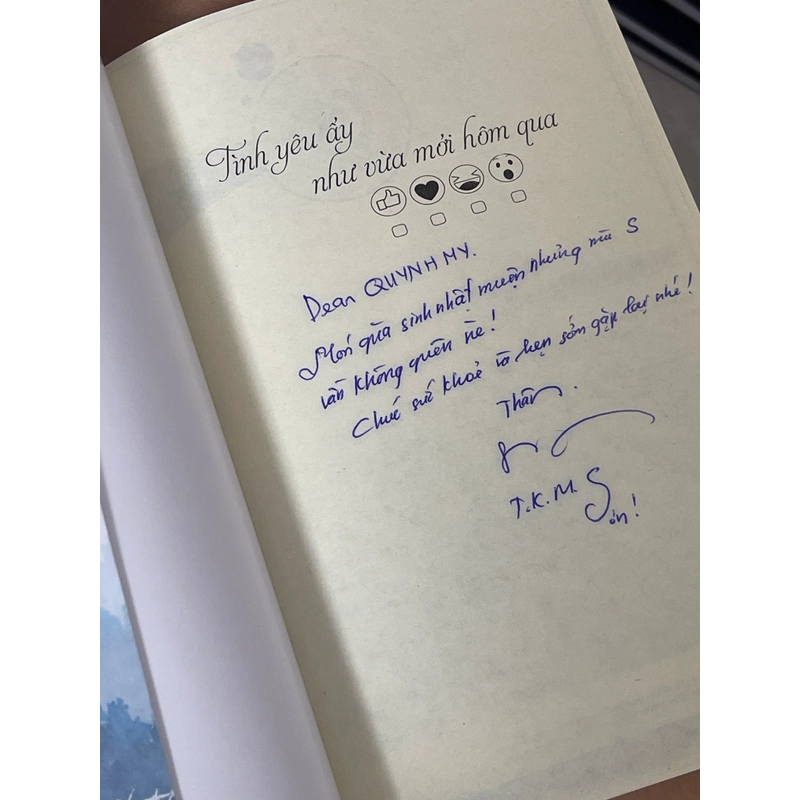 Tình yêu ấy
như vừa mới hôm qua
Dear QUYNH MY.
Món qùa sinh nhật muộn nhưng mà S
vẫn không quên nè!
Chúc sức khoẻ và hẹn sớm gặp lại nhé!
Thân.
T.K.M. Sơn!